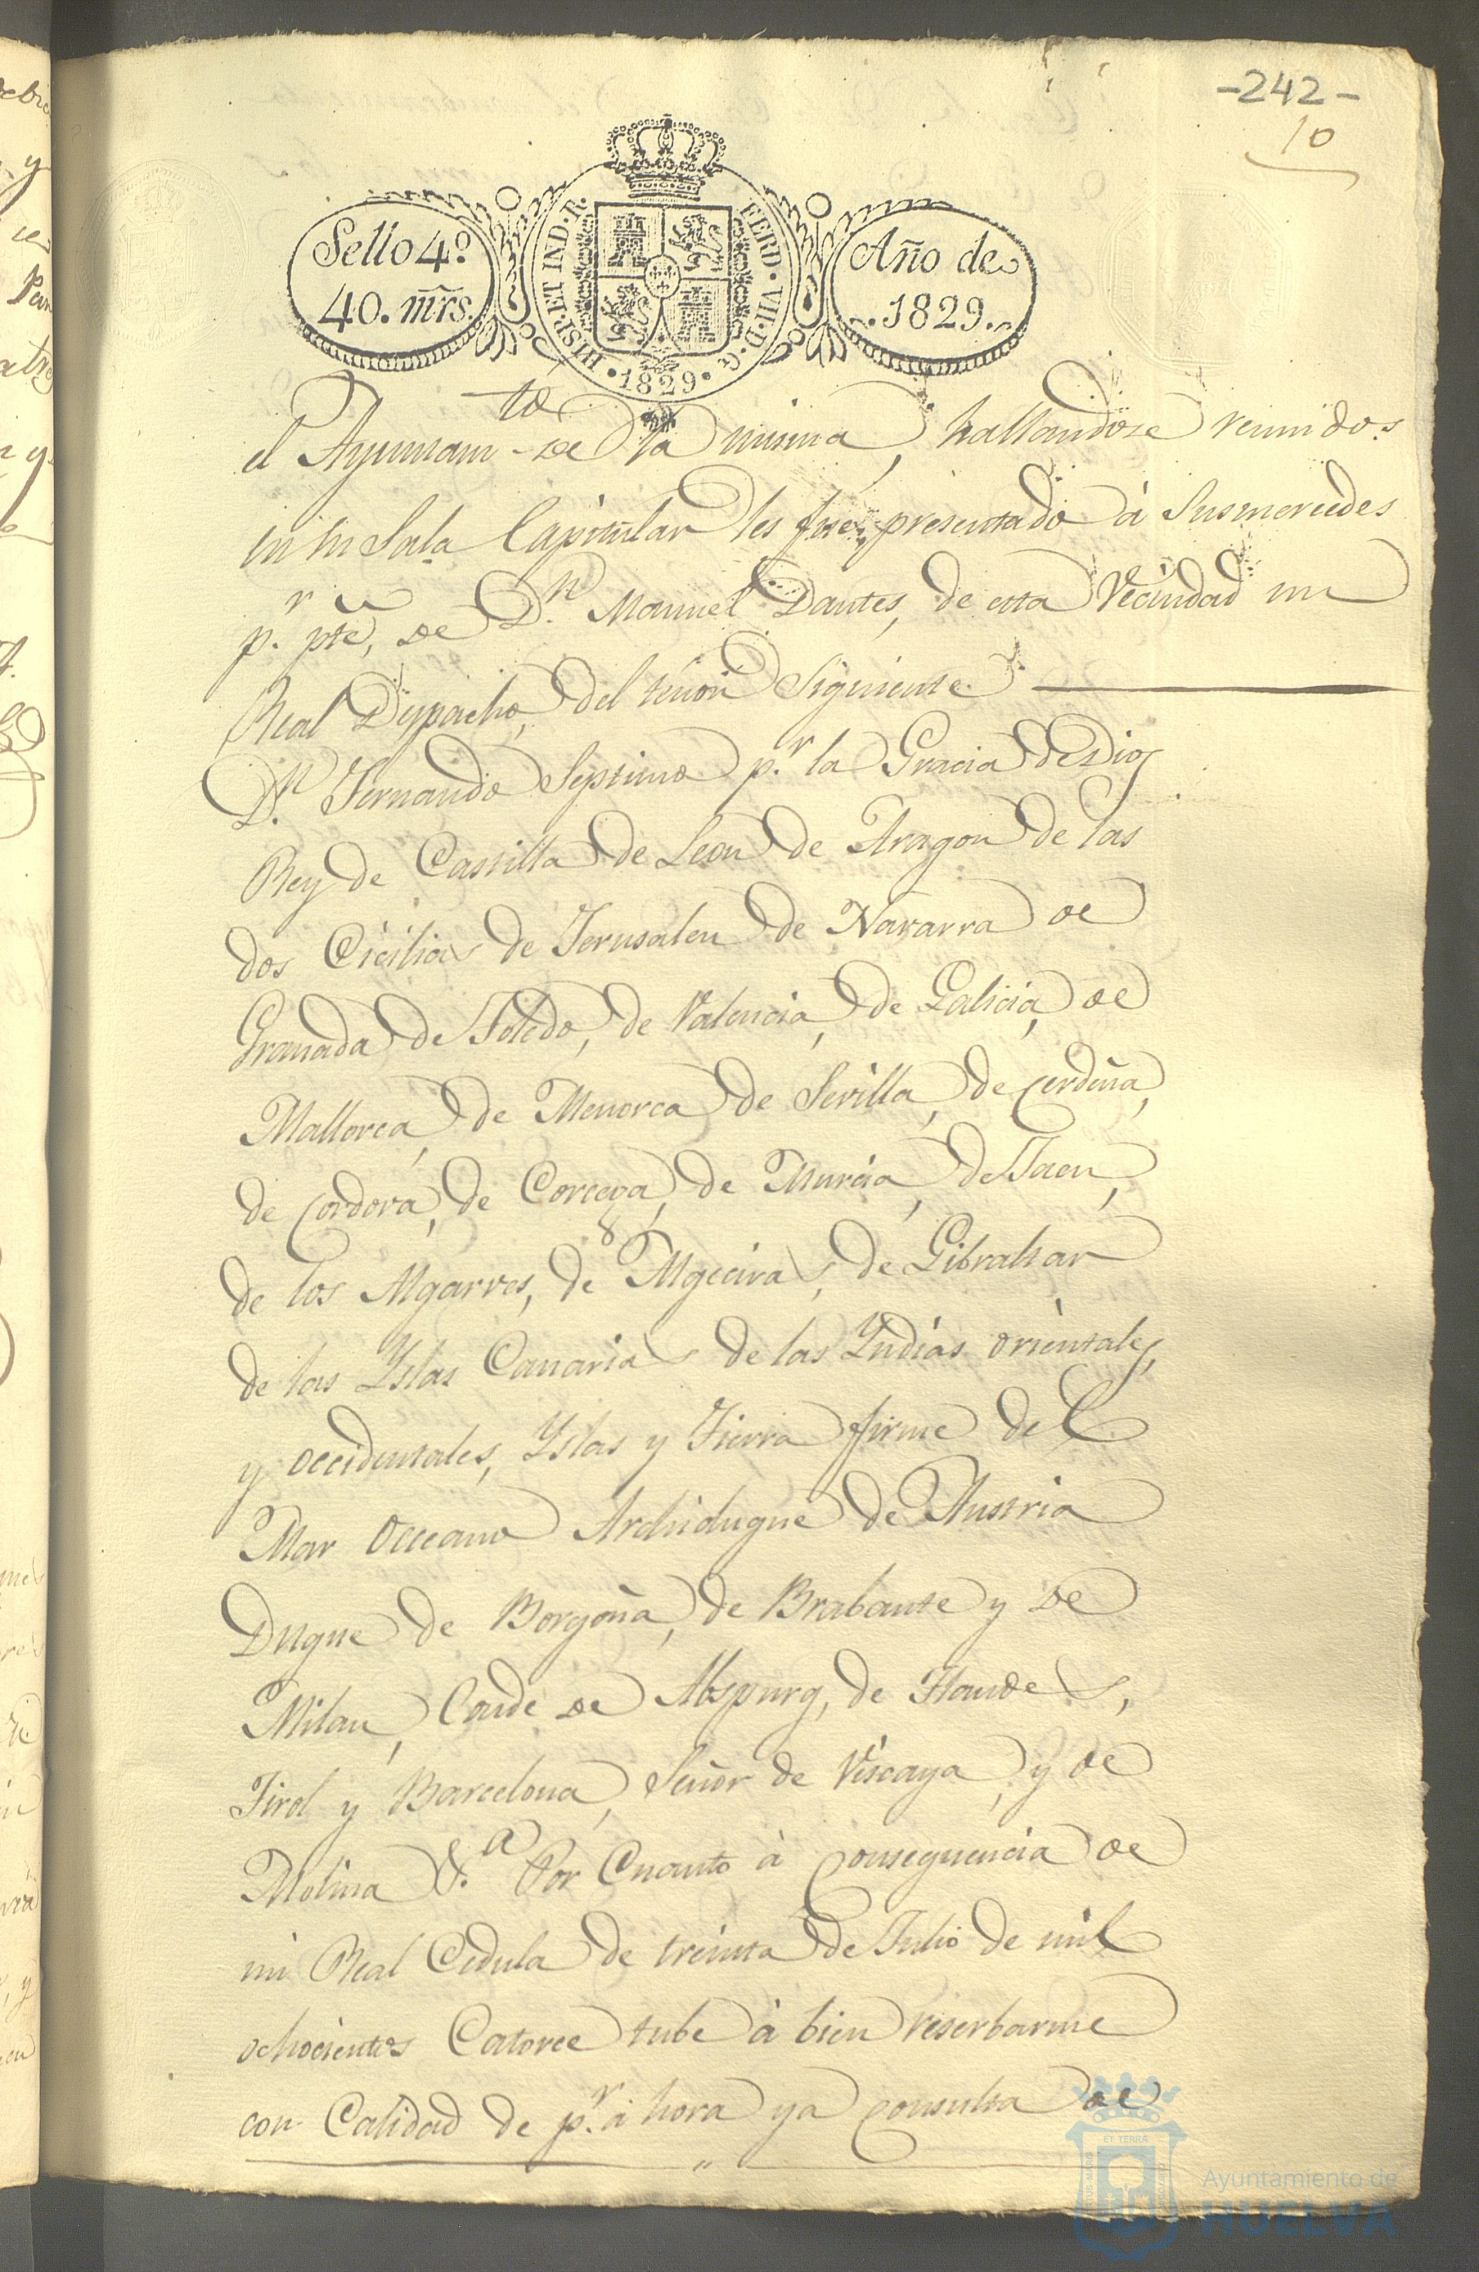 -242-
10
Sello 4.º
40. mrs.
HISP. ET IND. R. FERD. VII. D. G. 1829
Año de
1829.
el Ayuntam.to de la misma, hallandose reunidos
en su Sala Capitular les fue presentado à Susmercedes
p.r pte, de D.n Manuel Dantes, de esta Vecindad un
Real Despacho, del tenor Siguiente
D.n Fernando Septimo p.r la Gracia de Dios
Rey de Castilla de Leon de Aragon de las
dos Cicilias de Jerusalen de Navarra de
Granada de Toledo, de Valencia, de Galicia, de
Mallorca, de Menorca de Sevilla, de Cerdeña,
de Cordova, de Corcega, de Murcia, de Jaen,
de los Algarves, de Algeciras, de Gibraltar
de las Yslas Canarias de las Yndias orientales,
y occidentales, Yslas y Tierra firme del
Mar Occeano Archiduque de Austria
Duque de Borgoña, de Brabante y de
Milan, Conde de Abspurg, de Flandes,
Tirol y Barcelona, Señor de Viscaya, y de
Molina &.a Por Cuanto à consequencia de
mi Real Cedula de treinta de Julio de mil
ochocientos Catorce tube à bien reserbarme
con Calidad de p.r ahora ya consulta de
ET TERRA
Ayuntamiento de
HUELVA